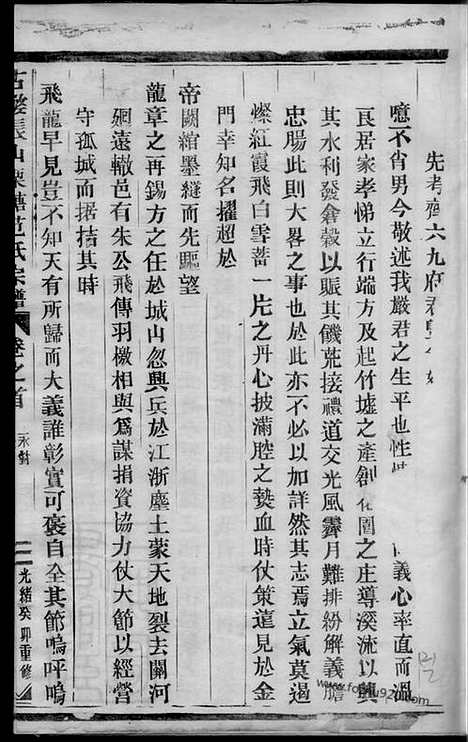 先考齊六九府君
噫不肖男今敬述我嚴君之生平也性 義心率直而溫
良居家孝悌立行端方及起竹墟之產創 圍之庄導溪流以興
其水利發倉穀以賑其饑荒接禮道交光風霽月難排紛解義膽
忠腸此則大畧之事也於此亦不必以加詳然其志焉立氣莫遏
燦紅霞飛白雪蓄一片之丹心披滿腔之熱血時仗策蓮見於金
門幸知名擢超於
帝闕綰墨縫而先驅望
龍章之再錫方之任於城山忽興兵於江浙塵土蒙天地裂去關河
迥遠轍邑有朱公飛傳羽檄相與爲謀捐資協力仗大節以經營
守孤城而据拮其時
飛龍早見豈不知天有所歸而大義誰彰實可褒自全其節嗚呼嗚
古婺長山栗塘范氏宗譜 卷之首 永劍 二 光緒癸卯重修
www.fo